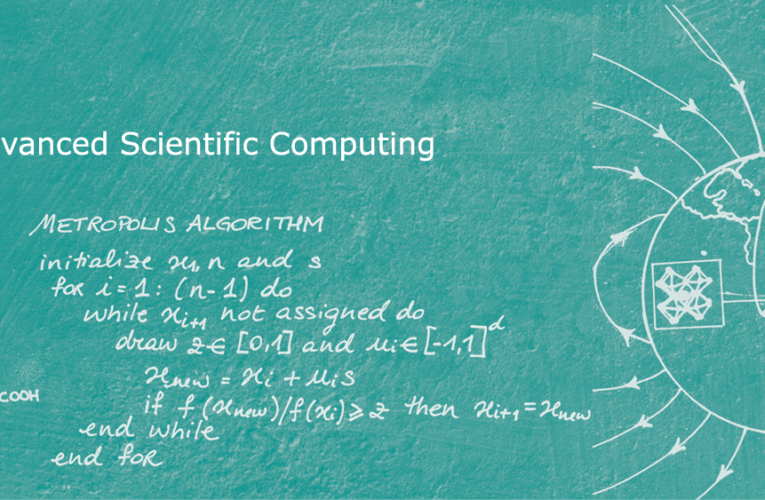 vanced Scientific Computing
METROPOLIS ALGORITHM
initialize x₁, n and s
for i = 1 : (n-1) do
while xᵢ₊₁ not assigned do
draw z ∈ [0,1] and uᵢ ∈ [-1,1]ᵈ
xnew = xᵢ + uᵢs
if f(xnew)/f(xᵢ) ⩾ z then xᵢ₊₁ = xnew
COOH
end while
end for